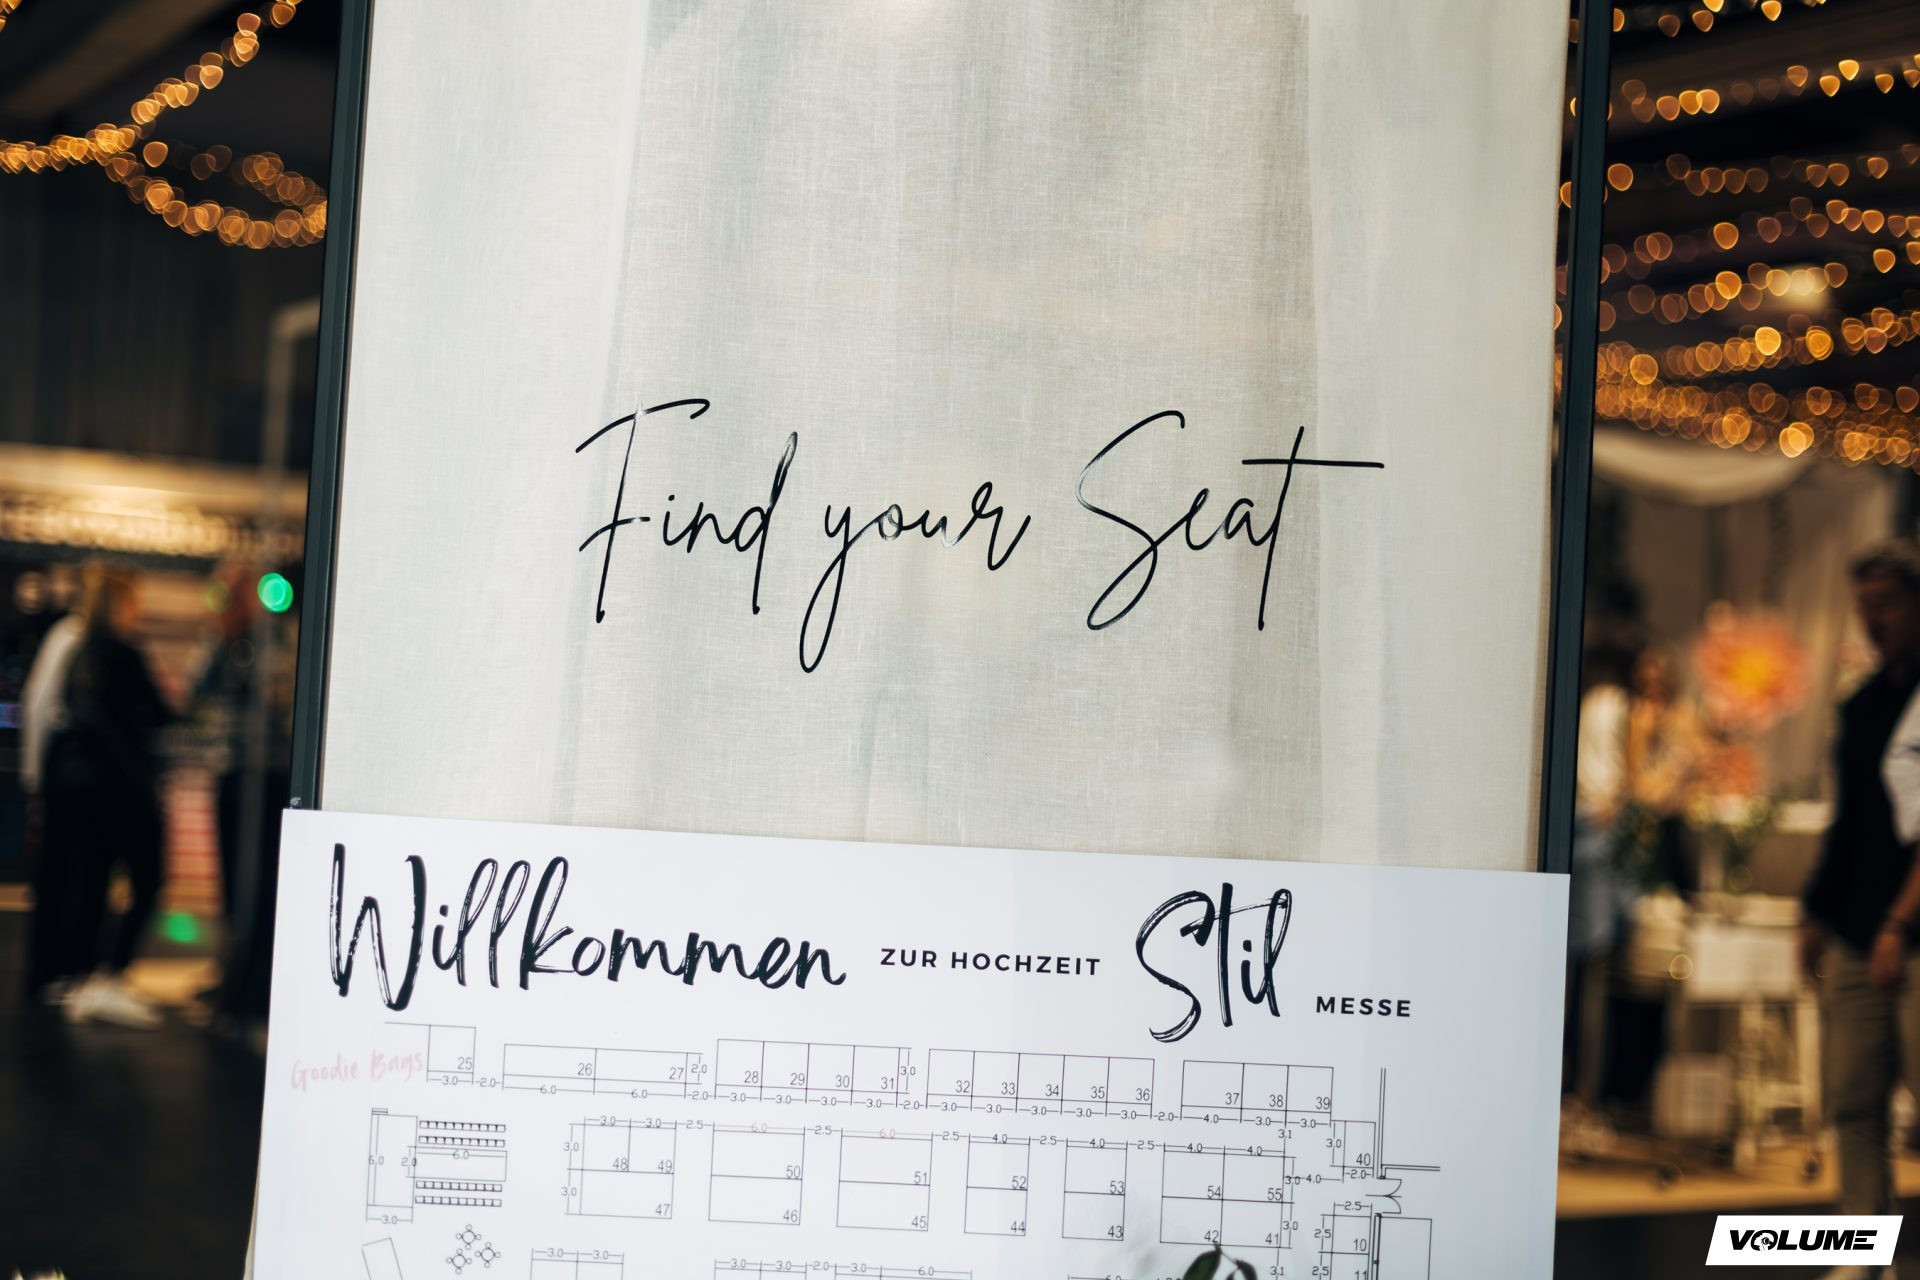 Find your Seat
Willkommen ZUR HOCHZEIT Stil MESSE
Goodie Bags
25 26 27 28 29 30 31 32 33 34 35 36 37 38 39
3.0 2.0 6.0 6.0 2.0 2.0 3.0 3.0 3.0 3.0 3.0 2.0 3.0 3.0 3.0 3.0 3.0 2.0 4.0 3.0 3.0
3.0 3.0 3.0 2.5 6.0 2.5 6.0 2.5 4.0 2.5 4.0 2.5 4.0 4.0 3.1 3.0
6.0 2.0 6.0 48 49 50 51 52 53 54 55 3.0 4.0 40 2.0
3.0 3.0 47 46 45 44 43 42 41 3.0 2.5 2.5 10
3.0 3.0 3.0 3.0 2.0 3.0 3.0 6.0 3.0 3.1 2.5 11
VOLUME